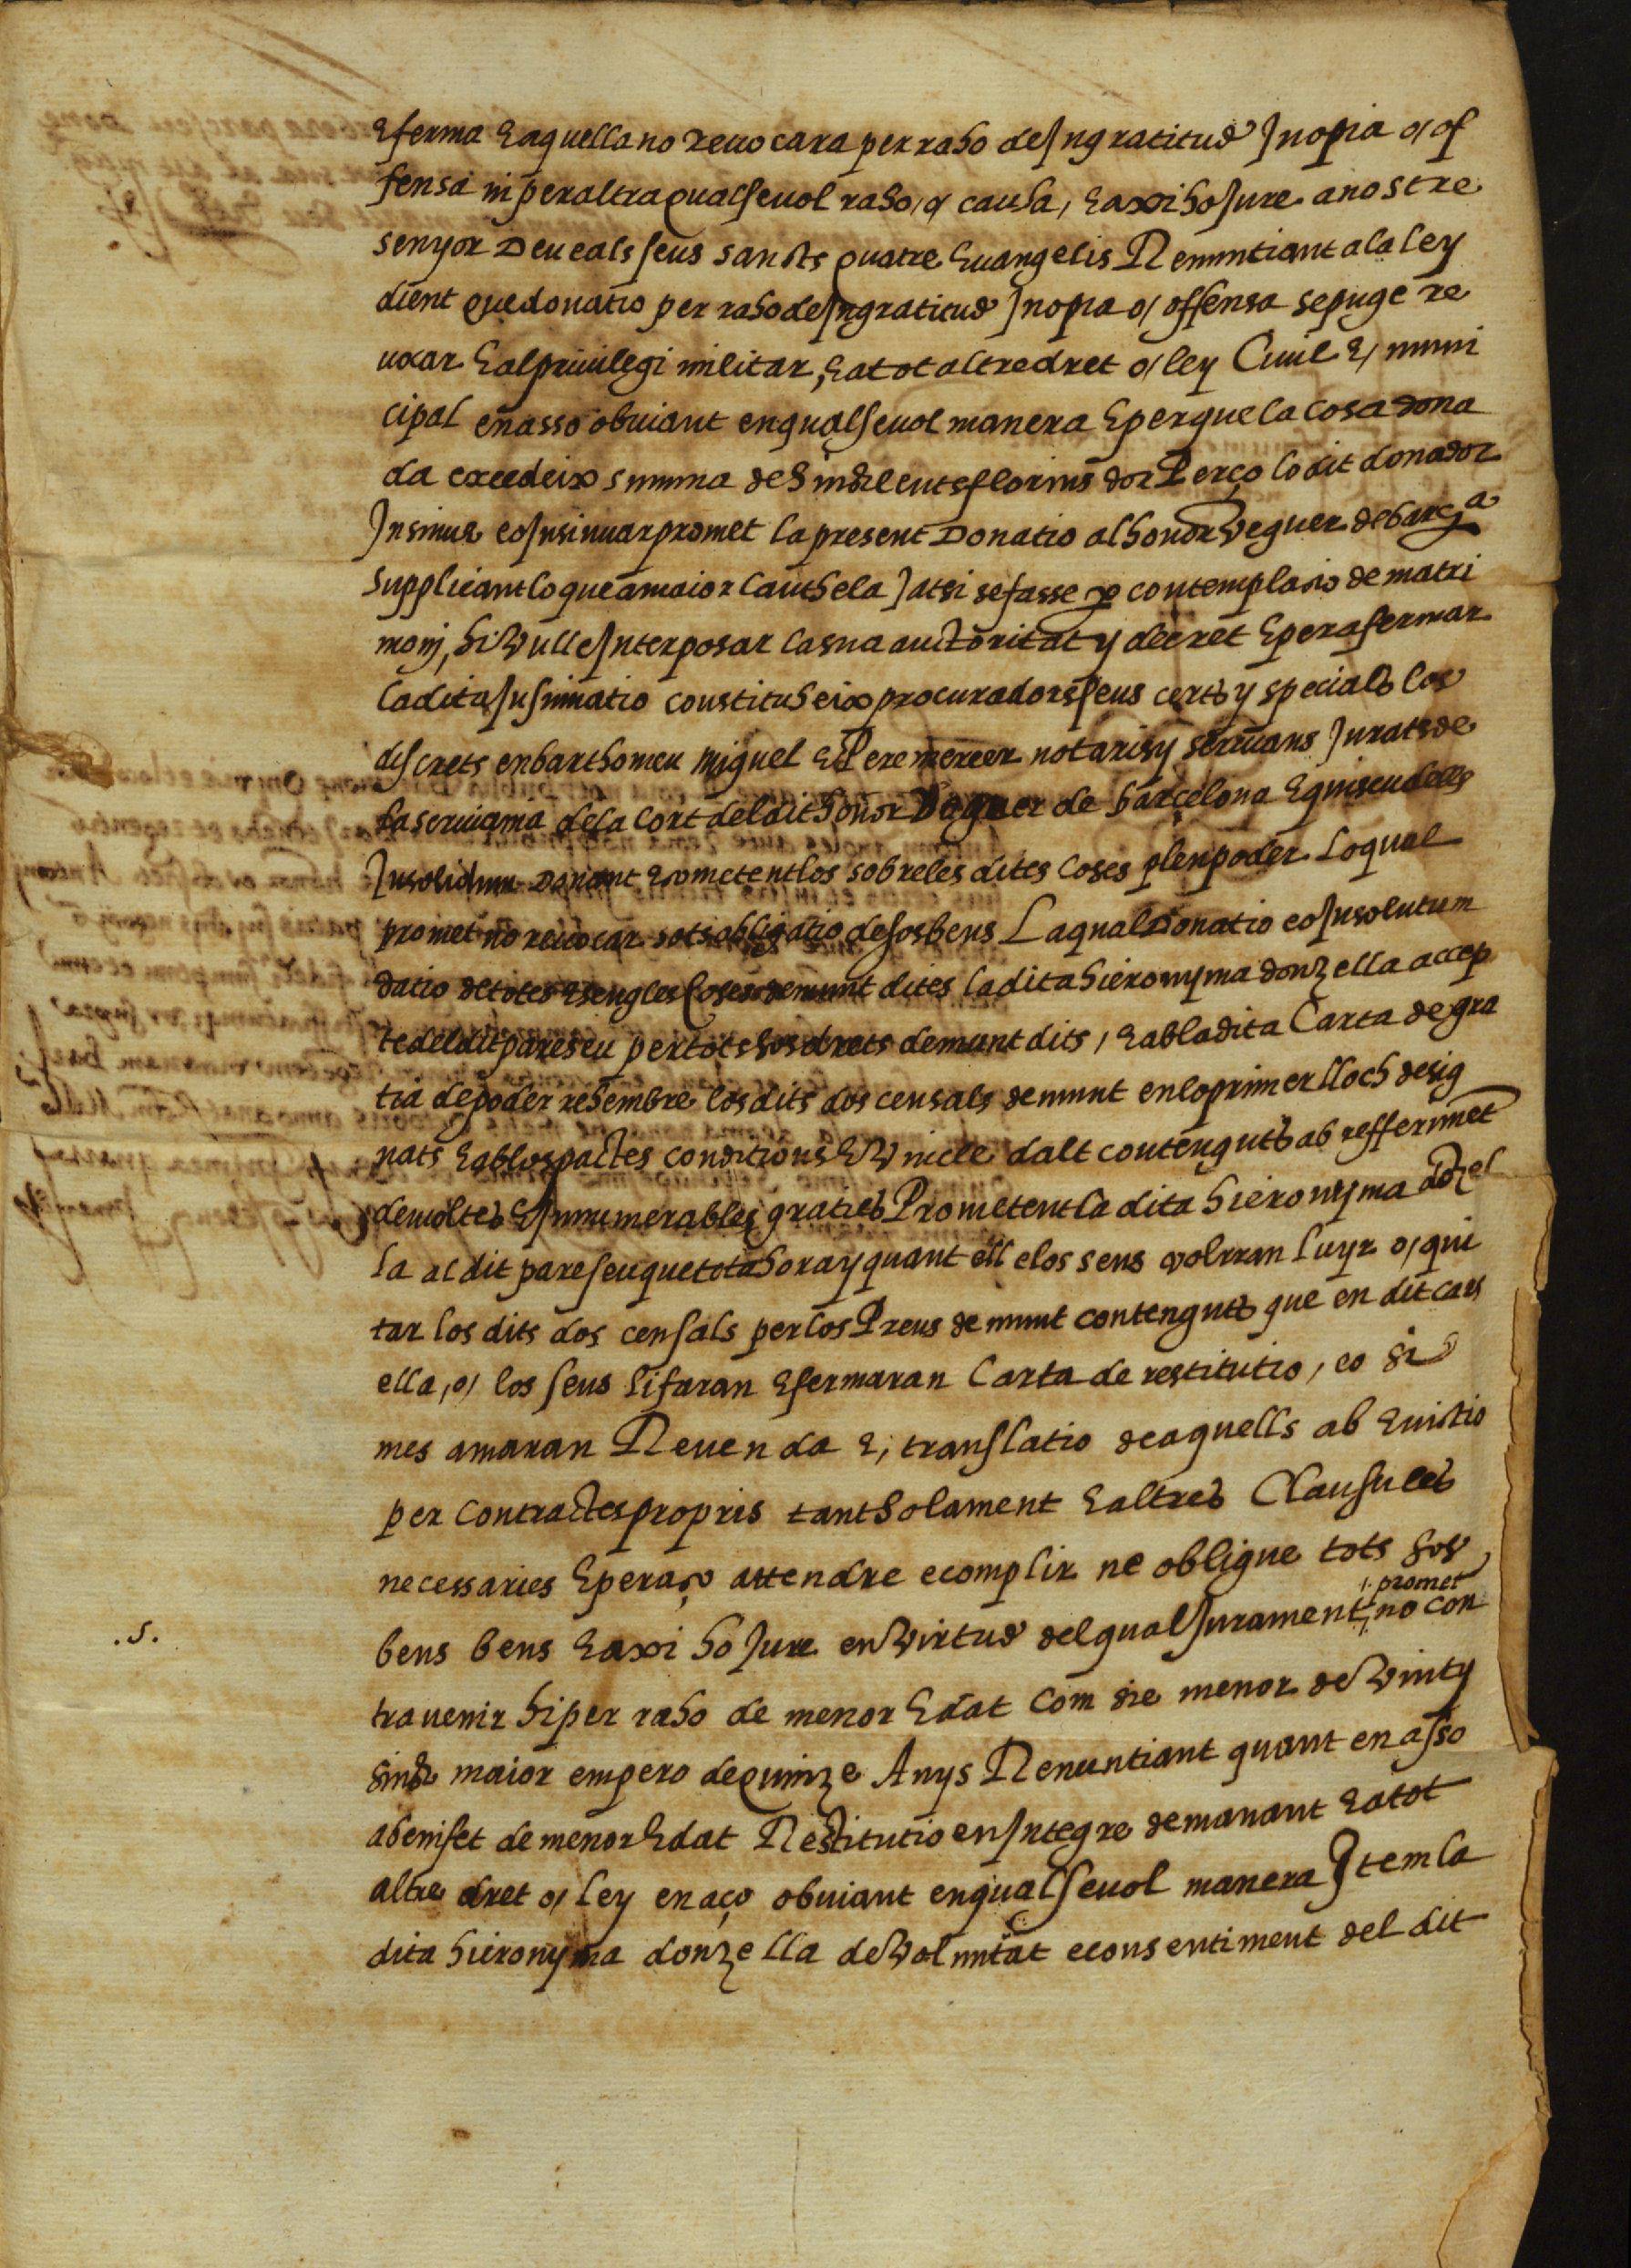 E ferma E aquella no revocara per raho de Ingratitud Inopia o/ of
fensa ni per altra qualsevol raho, o/ causa, E axi ho Jure a nostre
senyor Deu e als seus sancts quatre Evangelis Renuntiant a la ley
dient que donatio per raho de Ingratitud Inopia o/ offensa se puge re
vocar E al privilegi militar, E a tot altre dret o/ ley Civil E/ muni
cipal en asso obviant en qualsevol manera E per que la cosa dona
da excedeix summa de Sinch cents florins dor Perço lo dit donador
Insinua e o Insinuar promet la present Donatio al honor Veguer de barcª
supplicant lo que a maior cauthela Jatsi se fasse per contemplatio de matri
monj, hi Vulle Interposar la sua auctoritat y decret E per a fermar
la dita Insinuatio constitueheix procuradors seus certs y specials los
discrets en barthomeu Miquel E Pere mercer notaris y scrivans Jurats de
la scrivania de la Cort del dit honor Veguer de barçelona E quiscu dells
Insolidum Donant E cometentlos sobre les dites coses plen poder Lo qual
promet no revocar sots obligatio de sos bens La qual Donatio e o Insolutum
datio de totes E sengles Coses demunt dites la dita hieronyma donzella accep
te del dit pare seu per tots sos drets demunt dits, E ab la dita Carta de gra
tia de poder rehembre los dits dos censals demunt en lo primer lloch desig
nats E ab los pactes conditions E Vincle dalt contenguts ab refferiment
de moltes E Innumerables graties Prometent la dita hieronyma dozel
la al dit pare seu que tota hora y quant ell e los seus volrran luyr o/ qui
tar los dits dos censals per los Preus demunt contenguts que en dit cars
ella, o/ los seus li faran E fermaran Carta de restitutio, e o si
mes amaran Revenda E/ translatio de aquells ab Evictio
per contractes propris tantsolament E altres Clausules
necessaries E per aço attendre e complir ne oblige tots sos
/. promet
.s. bens bens E axi ho Jure en Virtud del qual Jurament /. no con
travenir hi per raho de menor Edat Com sie menor de Vint y
sinch maior empero de quinze Anys Renuntiant quant en asso
a benifet de menor Edat Restitutio en Integre demanant E a tot
altre dret o/ ley en aço obviant en qualsevol manera Item la
dita hieronyma donzella de Voluntat e consentiment del dit